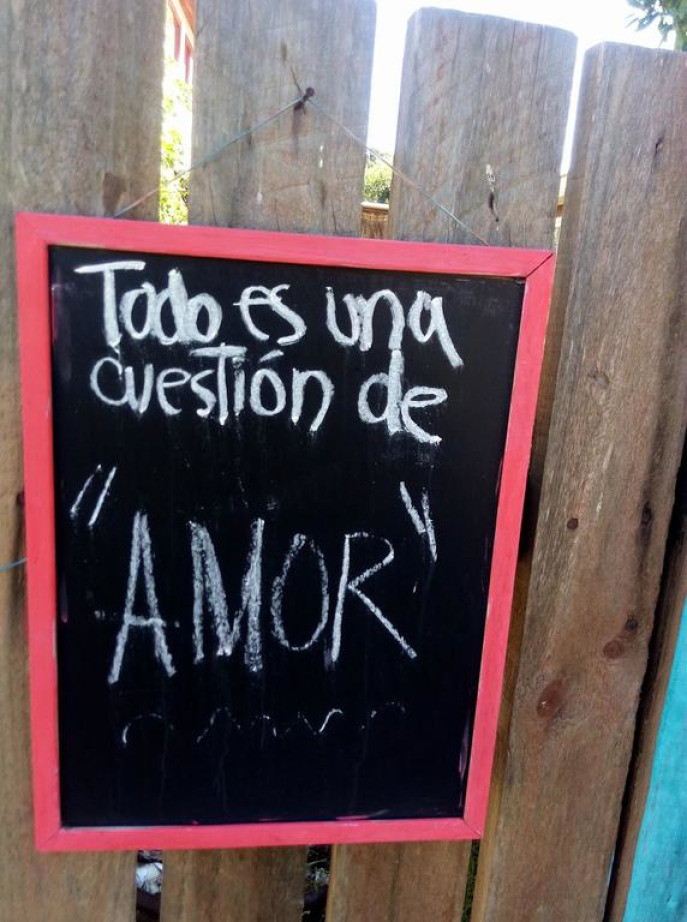 Todo es una
cuestión de
"AMOR"